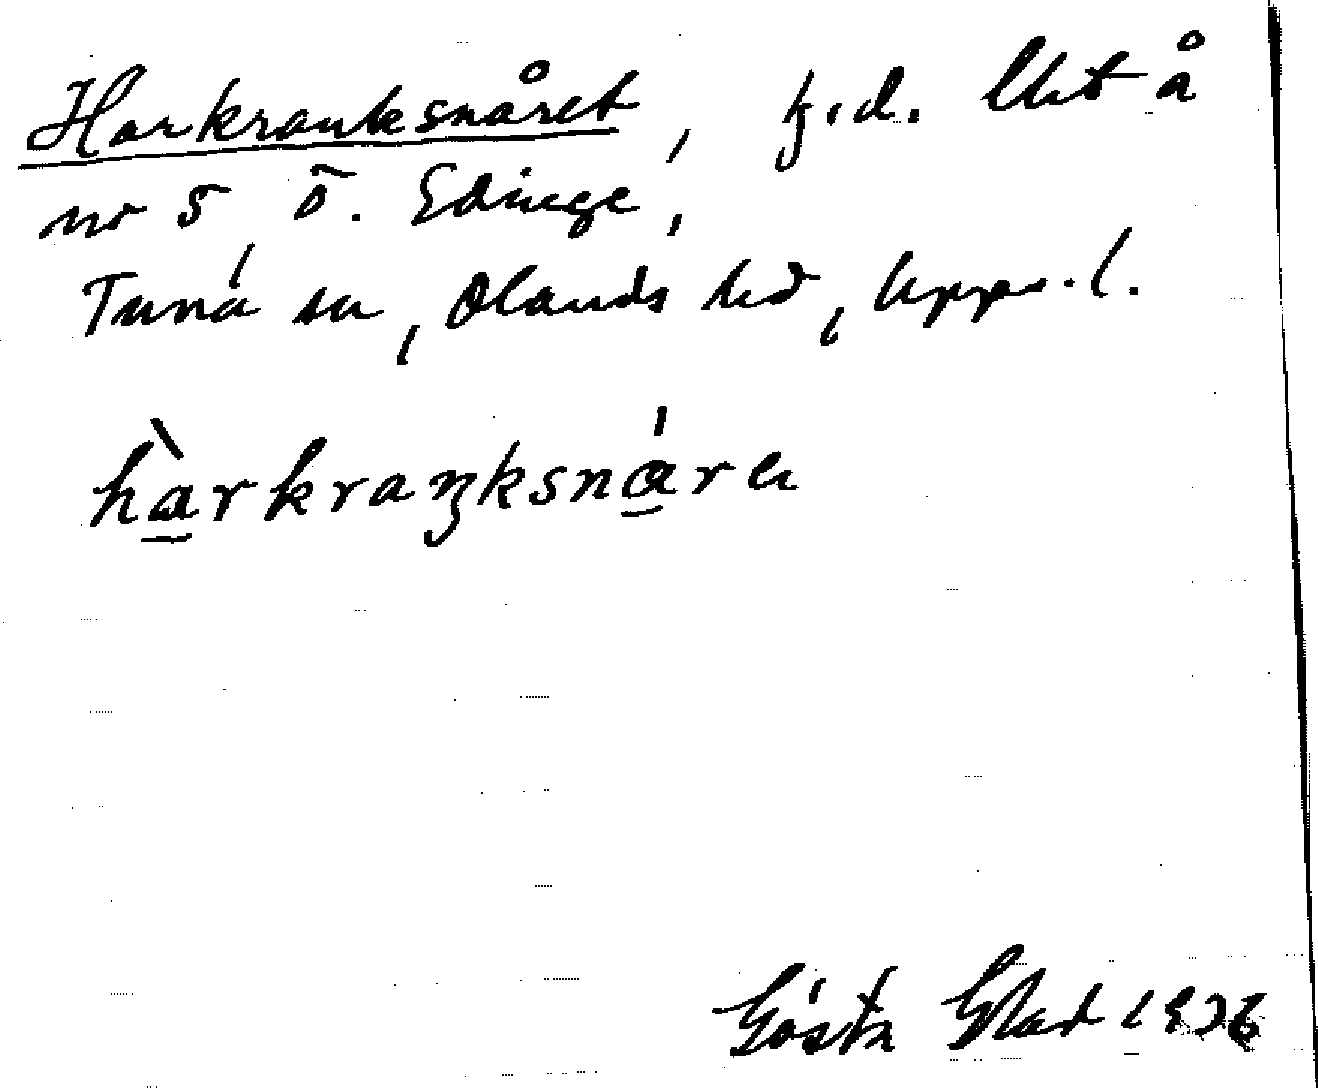 Harkranksnåret, f.d. Utå
nr 5 Ö. Edinge,
Tuna sn, Olands hd, Upps.l.
hàrkraŋksnáre
Gösta 1926